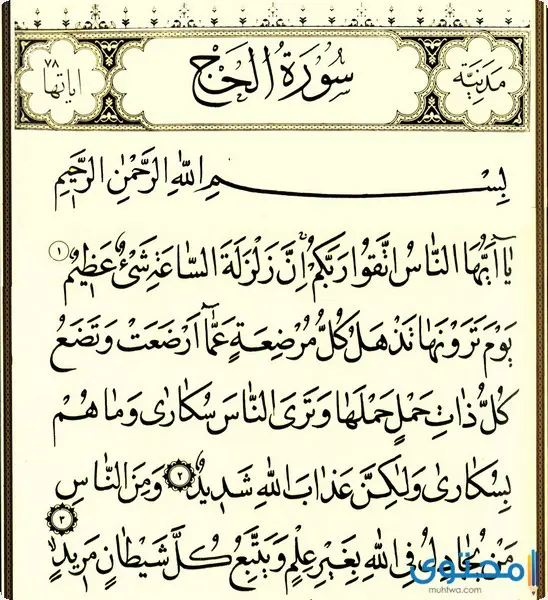 مَدَنِيَّة
سُورَةُ الْحَجِّ
اٰيَاتُهَا ٧٨
بِسْمِ اللّٰهِ الرَّحْمٰنِ الرَّحِيمِ
يَٓا اَيُّهَا النَّاسُ اتَّقُوا رَبَّكُمْ اِنَّ زَلْزَلَةَ السَّاعَةِ شَيْءٌ عَظِيمٌ ١
يَوْمَ تَرَوْنَهَا تَذْهَلُ كُلُّ مُرْضِعَةٍ عَمَّٓا اَرْضَعَتْ وَتَضَعُ
كُلُّ ذَاتِ حَمْلٍ حَمْلَهَا وَتَرَى النَّاسَ سُكَارٰى وَمَا هُمْ
بِسُكَارٰى وَلٰكِنَّ عَذَابَ اللّٰهِ شَدِيدٌ ٢ وَمِنَ النَّاسِ
مَنْ يُجَادِلُ فِي اللّٰهِ بِغَيْرِ عِلْمٍ وَيَتَّبِعُ كُلَّ شَيْطَانٍ مَرِيدٍ ٣
محتوى
muhtwa.com